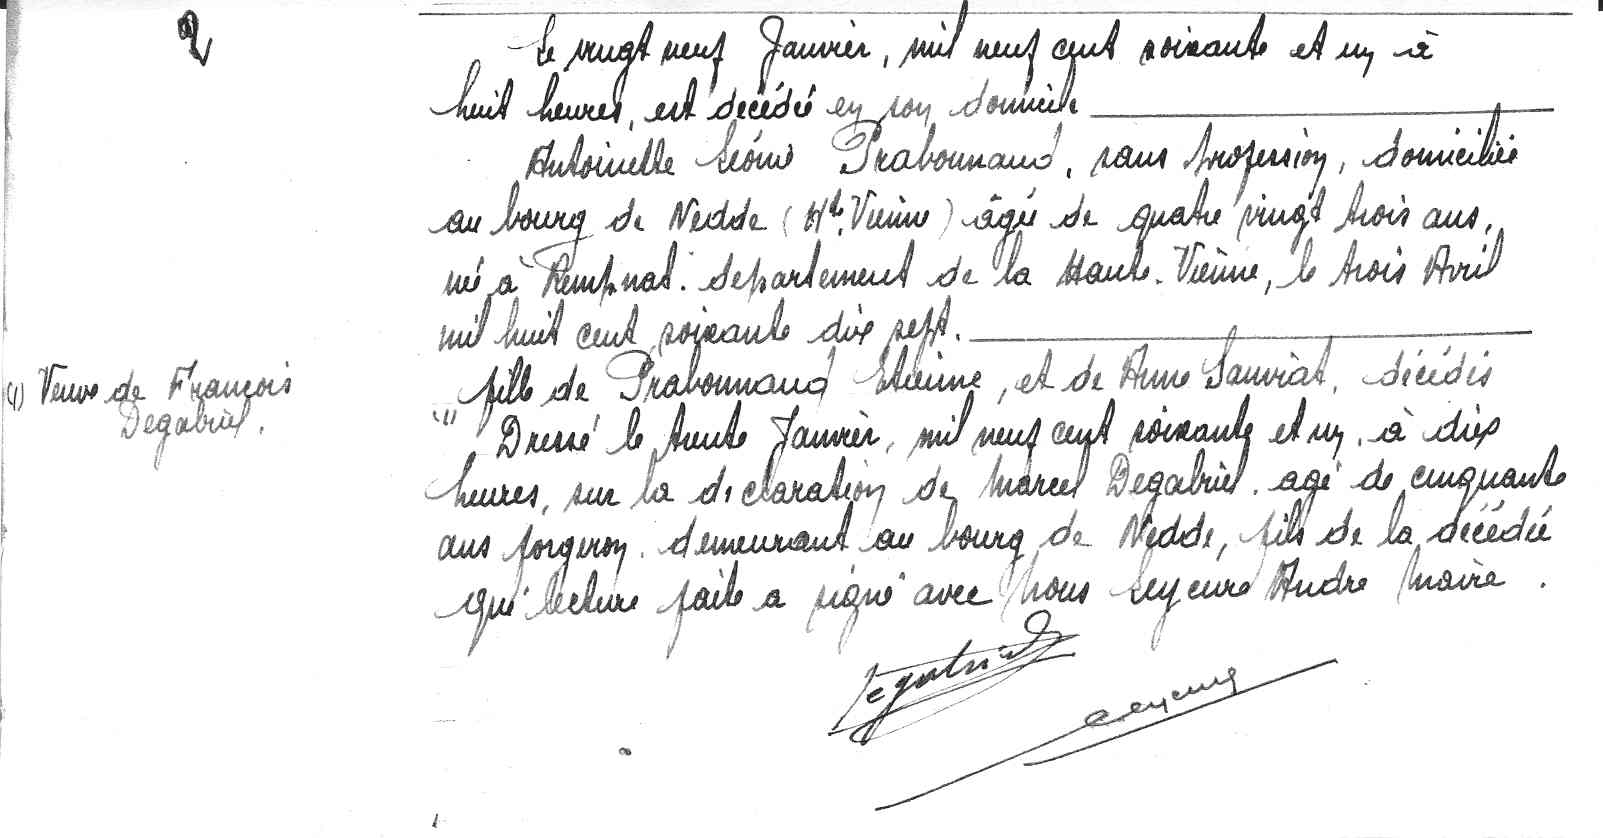 2
Le vingt neuf Janvier, mil neuf cent soixante et un à
huit heures, est décédé en son domicile
Antoinette Léonie Prabonnaud, sans profession, domiciliée
au bourg de Nedde (Hte Vienne) âgée de quatre vingt trois ans,
né à Rempnat. departement de la Haute-Vienne, le trois Avril
mil huit cent soixante dix sept.
fille de Prabonnaud Etienne, et de Anne Sauviat, décédés
(1) Veuve de François
Degabriel.
(1)
Dressé le trente Janvier, mil neuf cent soixante et un, à dix
heures, sur la declaration de Marcel Degabriel. agé de cinquante
ans forgeron. demeurant au bourg de Nedde, fils de la décédée
qui lecture faite a signé avec Nous Leycure André Maire.
Degabriel
Leycure